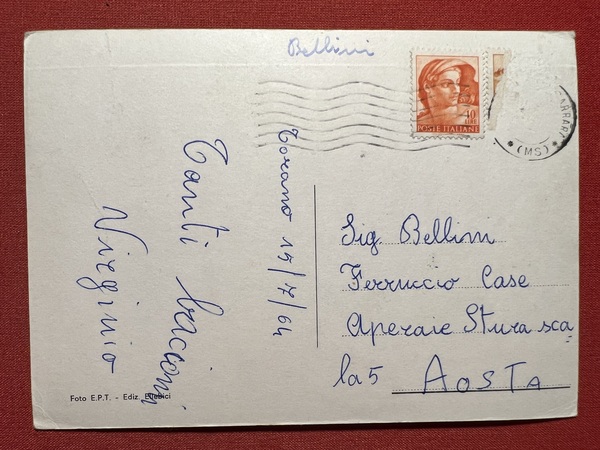 Bellini
40
LIRE
POSTE ITALIANE
CARRARA
(MS)
Torano 15/7/64
Tanti bacioni
Virginio
Sig. Bellini
Ferruccio Case
Aperaie Stura sca
la 5 AOSTA
Foto E.P.T. - Ediz.